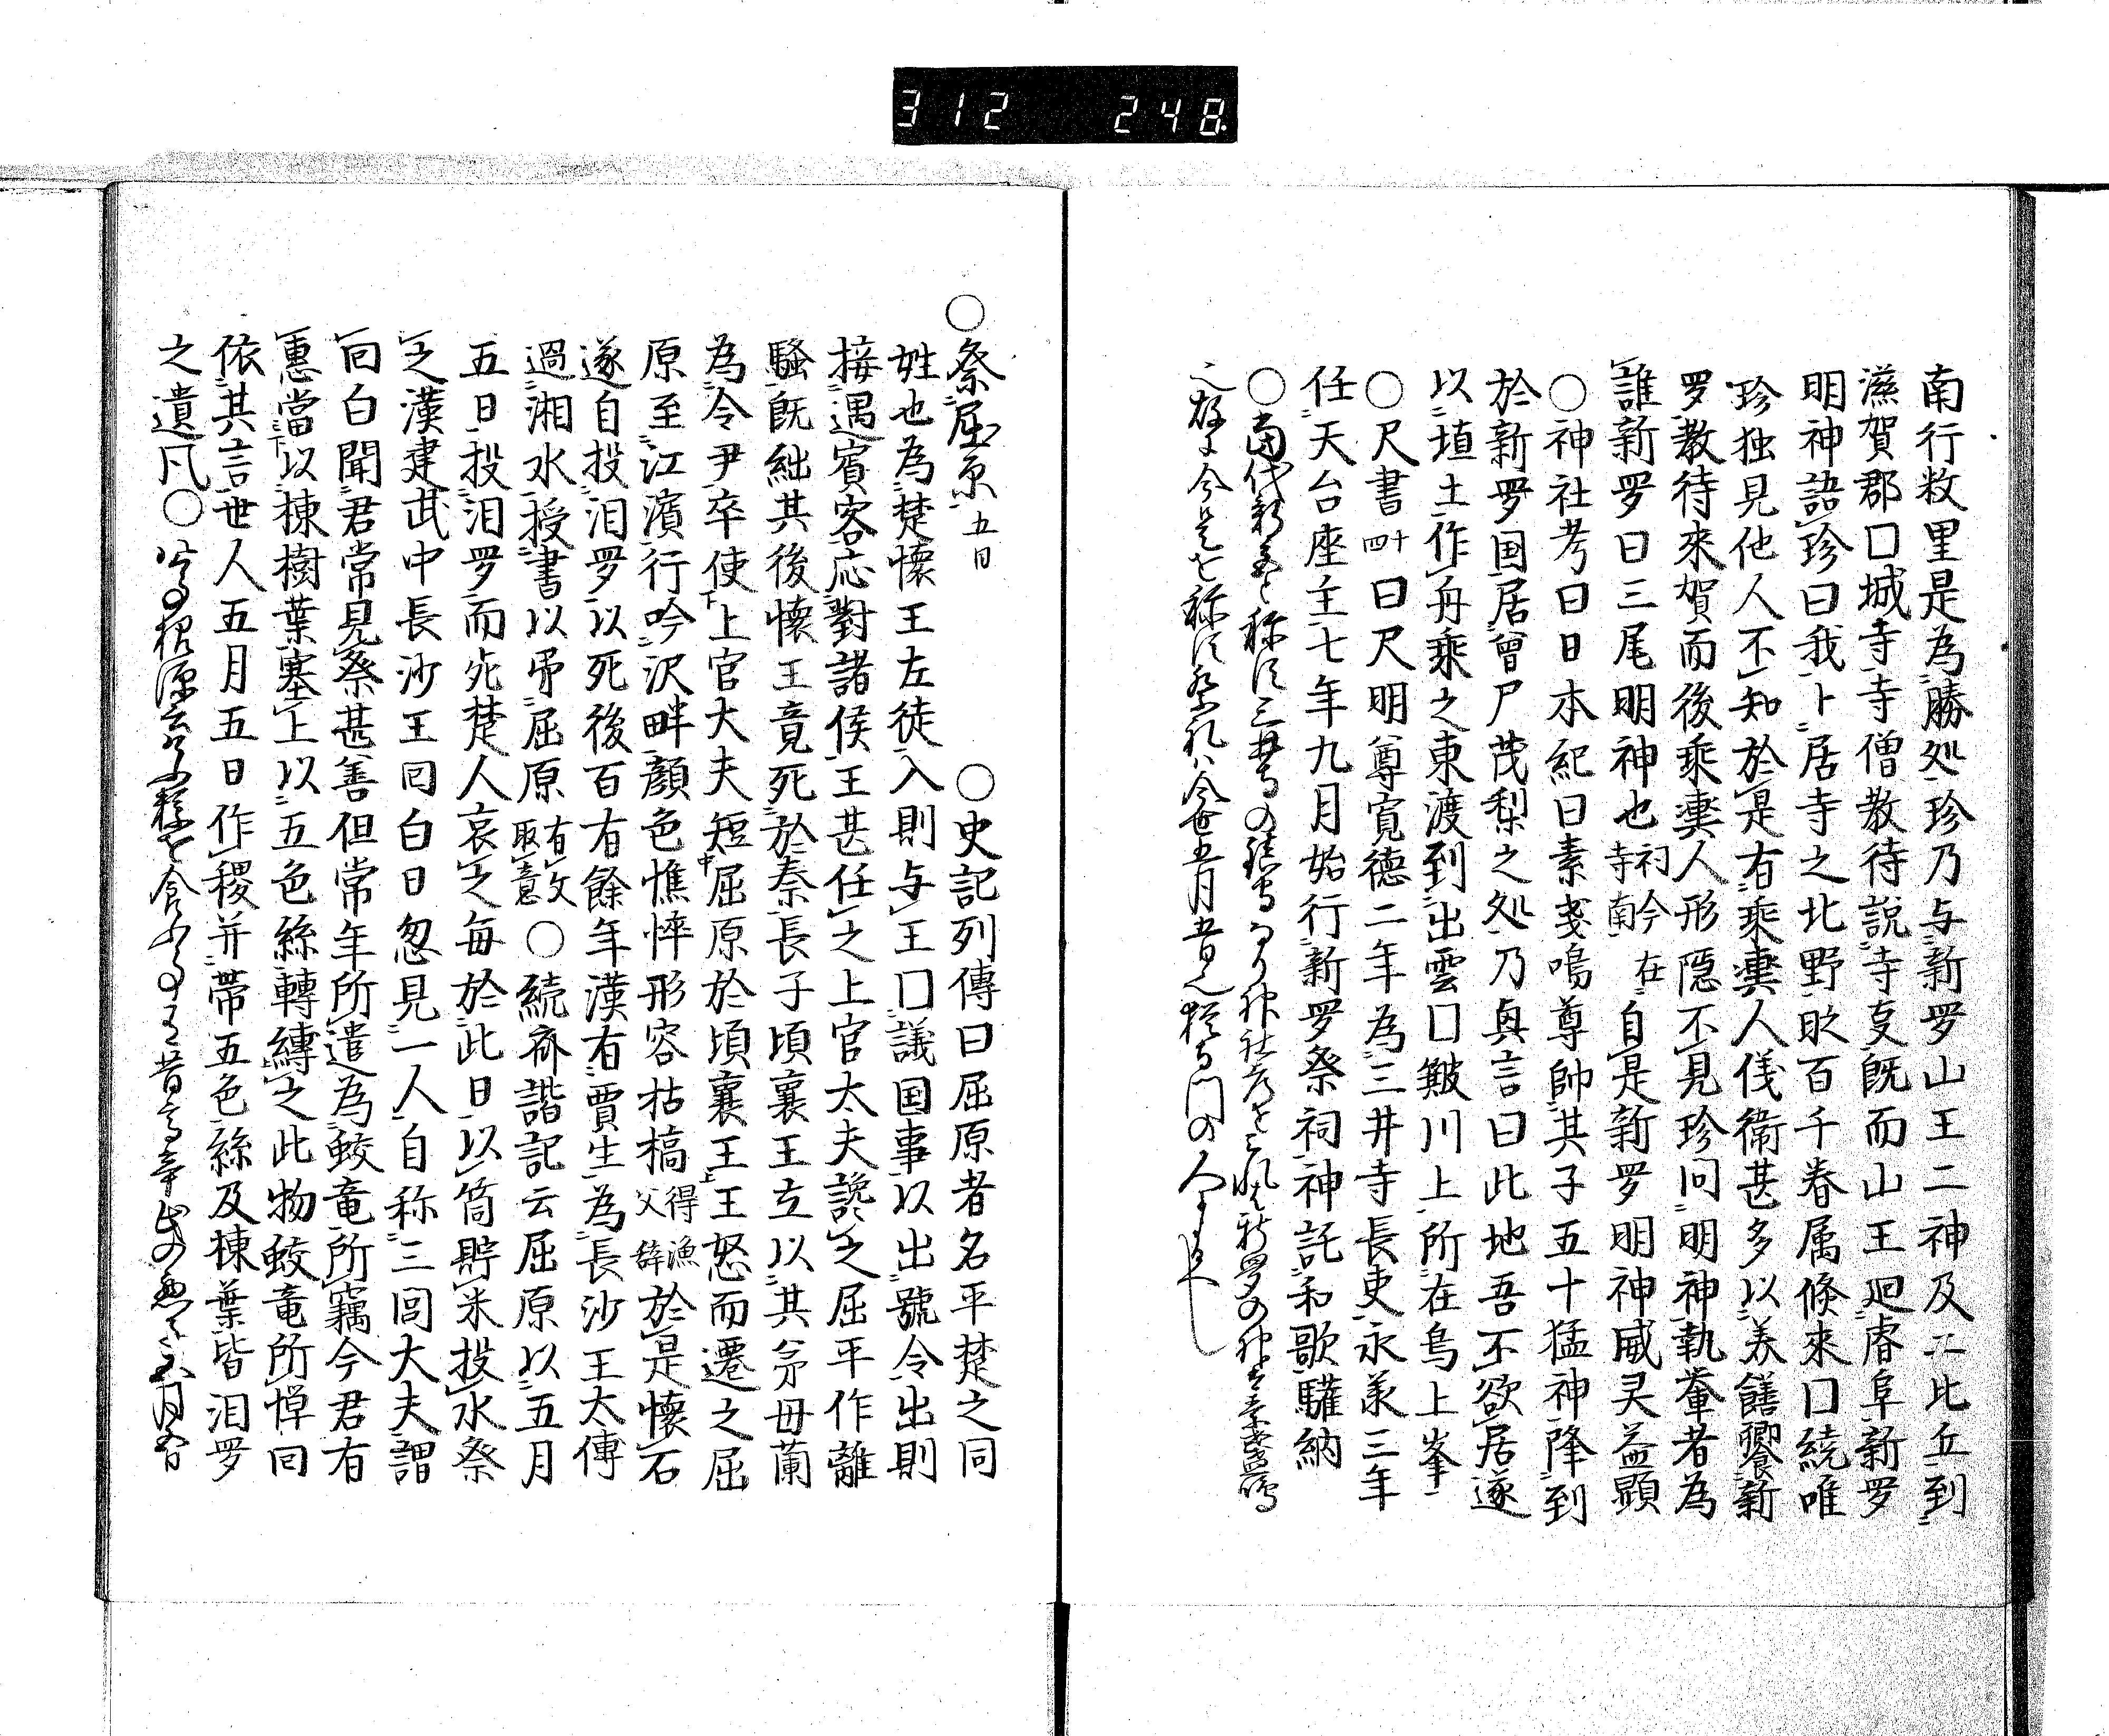 312 248
南行数里是為勝処珍乃与新罗山王二神及二比丘到
滋賀郡囗城寺寺僧教待説寺㕝既而山王廻睿阜新罗
明神語珍曰我卜居寺之北野眂百千眷属倏來囗繞唯
珍独見他人不知於是有乘輿人儀衛甚多以美饍饗新
罗教待來賀而後乘輿人形隠不見珍问明神執輦者為
誰新罗曰三尾明神也祠今在寺南自是新罗明神威灵益顕
〇神社考曰日本紀曰素戔嗚尊帥其子五十猛神降到
於新罗国居曽尸茂梨之処乃輿言曰此地吾不欲居遂
以埴土作舟乘之東渡到出雲囗簸川上所在鳥上峯
〇尺書十四曰尺明尊寛德二年為三井寺長吏永羕三年
任天台座主七年九月始行新罗祭祠神託和歌驩納
〇当代新宮と称は三井の鎮守なり神社考を見れは新罗の神は素盞嗚
五月五日也
〇祭屈原五日 〇史記列傳曰屈原者名平楚之同
姓也為楚懐王左徒入則与王囗議国事以出號令出則
接遇賓客応對諸侯王甚任之上官太夫讒之屈平作離
騷既絀其後懐王竟死於秦長子頃襄王立以其弟毋蘭
為令尹卒使上官大夫短屈原於頃襄王王怒而遷之屈
原至江濱行吟沢畔顔色憔悴形容枯槁得漁父辞於是懐石
遂自投汨罗以死後百有餘年漢有賈生為長沙王太傅
過湘水授書以弔屈原有文取意〇続斎諧記云屈原以五月
五日投汨罗而死楚人哀之毎於此日以筒貯米投水祭
之漢建武中長沙王囘白日忽見一人自称三閭大夫謂
囘白聞君常見祭甚善但常年所遣為鮫竜所竊今君有
惠當以棟樹葉塞上以五色絲轉縛之此物鮫竜所憚囘
依其言世人五月五日作稷并帯五色絲及棟葉皆汨罗
之遺凡〇公事根源云